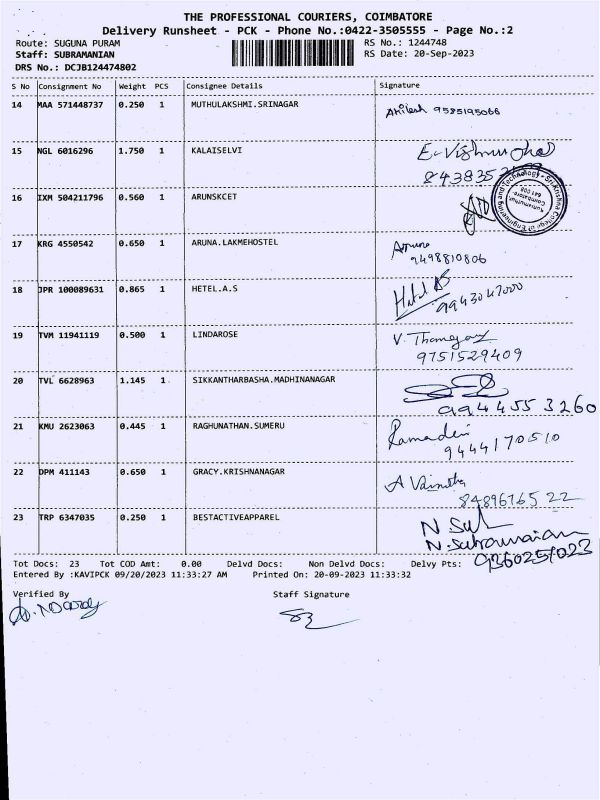 THE PROFESSIONAL COURIERS, COIMBATORE
Delivery Runsheet - PCK - Phone No.:0422-3505555 - Page No.:2
Route: SUGUNA PURAM RS No.: 1244748
Staff: SUBRAMANIAN RS Date: 20-Sep-2023
DRS No.: DCJB124474802
S No Consignment No Weight PCS Consignee Details Signature
14 MAA 571448737 0.250 1 MUTHULAKSHMI.SRINAGAR 9585195066
15 NGL 6016296 1.750 1 KALAISELVI
16 IXM 504211796 0.560 1 ARUNSKCET
17 KRG 4550542 0.650 1 ARUNA.LAKMEHOSTEL Aruna
9498810806
18 JPR 100089631 0.865 1 HETEL.A.S
9943047000
19 TVM 11941119 0.500 1 LINDAROSE
9751529409
20 TVL 6628963 1.145 1 SIKKANTHARBASHA.MADHINANAGAR
9944553260
21 KMU 2623063 0.445 1 RAGHUNATHAN.SUMERU
9444170510
22 DPM 411143 0.650 1 GRACY.KRISHNANAGAR
8489676522
23 TRP 6347035 0.250 1 BESTACTIVEAPPAREL
N.Subramaian
9360251023
Tot Docs: 23 Tot COD Amt: 0.00 Delvd Docs: Non Delvd Docs: Delvy Pts:
Entered By :KAVIPCK 09/20/2023 11:33:27 AM Printed On: 20-09-2023 11:33:32
Verified By Staff Signature